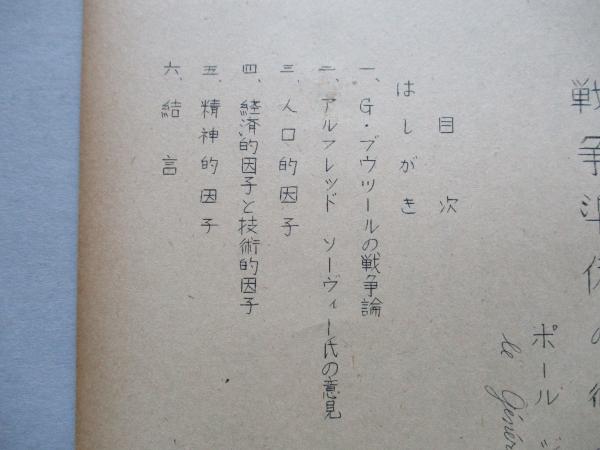 戦争準備の
ポール
le Génér
目次
はしがき
一、G・ブウツールの戦争論
二、アルフレッド ソーヴィー氏の意見
三、人口的因子
四、経済的因子と技術的因子
五、精神的因子
六、結言